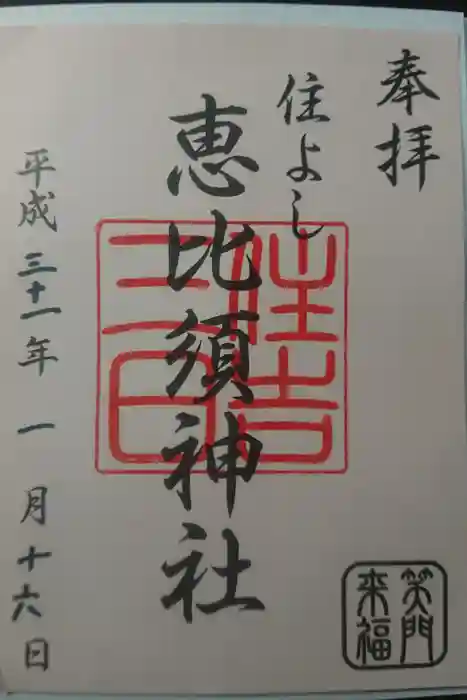 奉拝
住よし
恵比須神社
平成三十一年一月十六日
住吉
笑門
来福